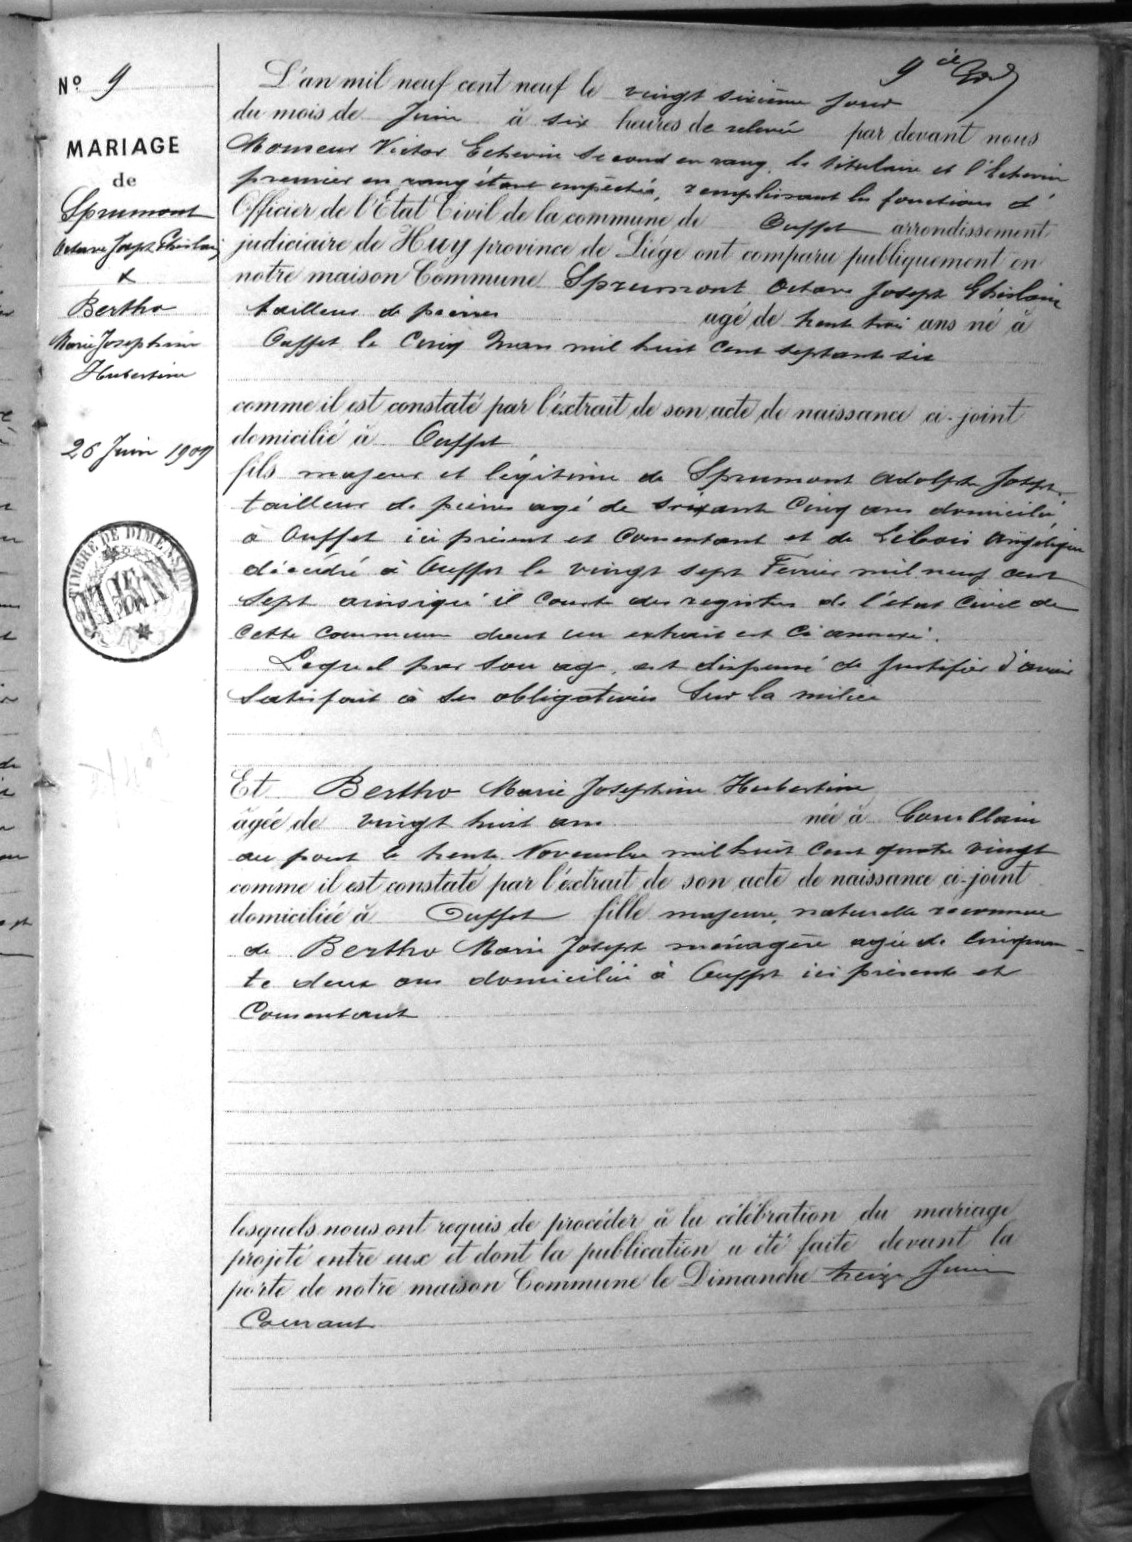 Nº 9
MARIAGE
de
Sprumont
Octave Joseph Ghislain
&
Bertho
Marie Josephine
Hubertine
26 Juin 1909
TIMBRE DE DIMENSION
9ie
L'an mil neuf cent neuf le vingt sixième jour
du mois de Juin à six heures de relevée par devant nous
Monseur Victor Echevin second en rang, le titulaire et l'Echevin
premier en rang étant empêchés, remplissant les fonctions d'
Officier de l'Etat Civil de la commune de Ouffet arrondissement
judiciaire de Huy province de Liége ont comparu publiquement en
notre maison Commune Sprumont Octave Joseph Ghislain
tailleur de pierres agé de trente trois ans né à
Ouffet le Cinq Mars mil huit cent septante six
comme il est constaté par l'éxtrait de son acte de naissance ci-joint
domicilié à Ouffet
fils majeur et légitime de Sprumont Adolphe Joseph
tailleur de pierres agé de soixante cinq ans domicilié
à Ouffet ici présent et Consentant et de Lebois Angélique
décédée à Ouffet le vingt sept Fevrier mil neuf cent
sept ainsi qu'il conste des registres de l'état civil de
cette commune dont un extrait est ci annexé.
Lequel par son age, est dispensé de justifier d'avoir
satisfait à ses obligations sur la milice
Et Bertho Marie Josephine Hubertine
âgée de vingt huit ans née à Comblain
au pont le trente Novembre mil huit cent quatre vingt
comme il est constaté par l'éxtrait de son acte de naissance ci-joint
domiciliée à Ouffet fille majeure, naturelle reconnue
de Bertho Marie Joseph ménagère agée de cinquan-
te deux ans domiciliée à Ouffet ici présente et
Consentant
lesquels nous ont requis de procéder à la célébration du mariage
projeté entre eux et dont la publication a été faite devant la
porte de notre maison Commune le Dimanche treize Juin
Courant